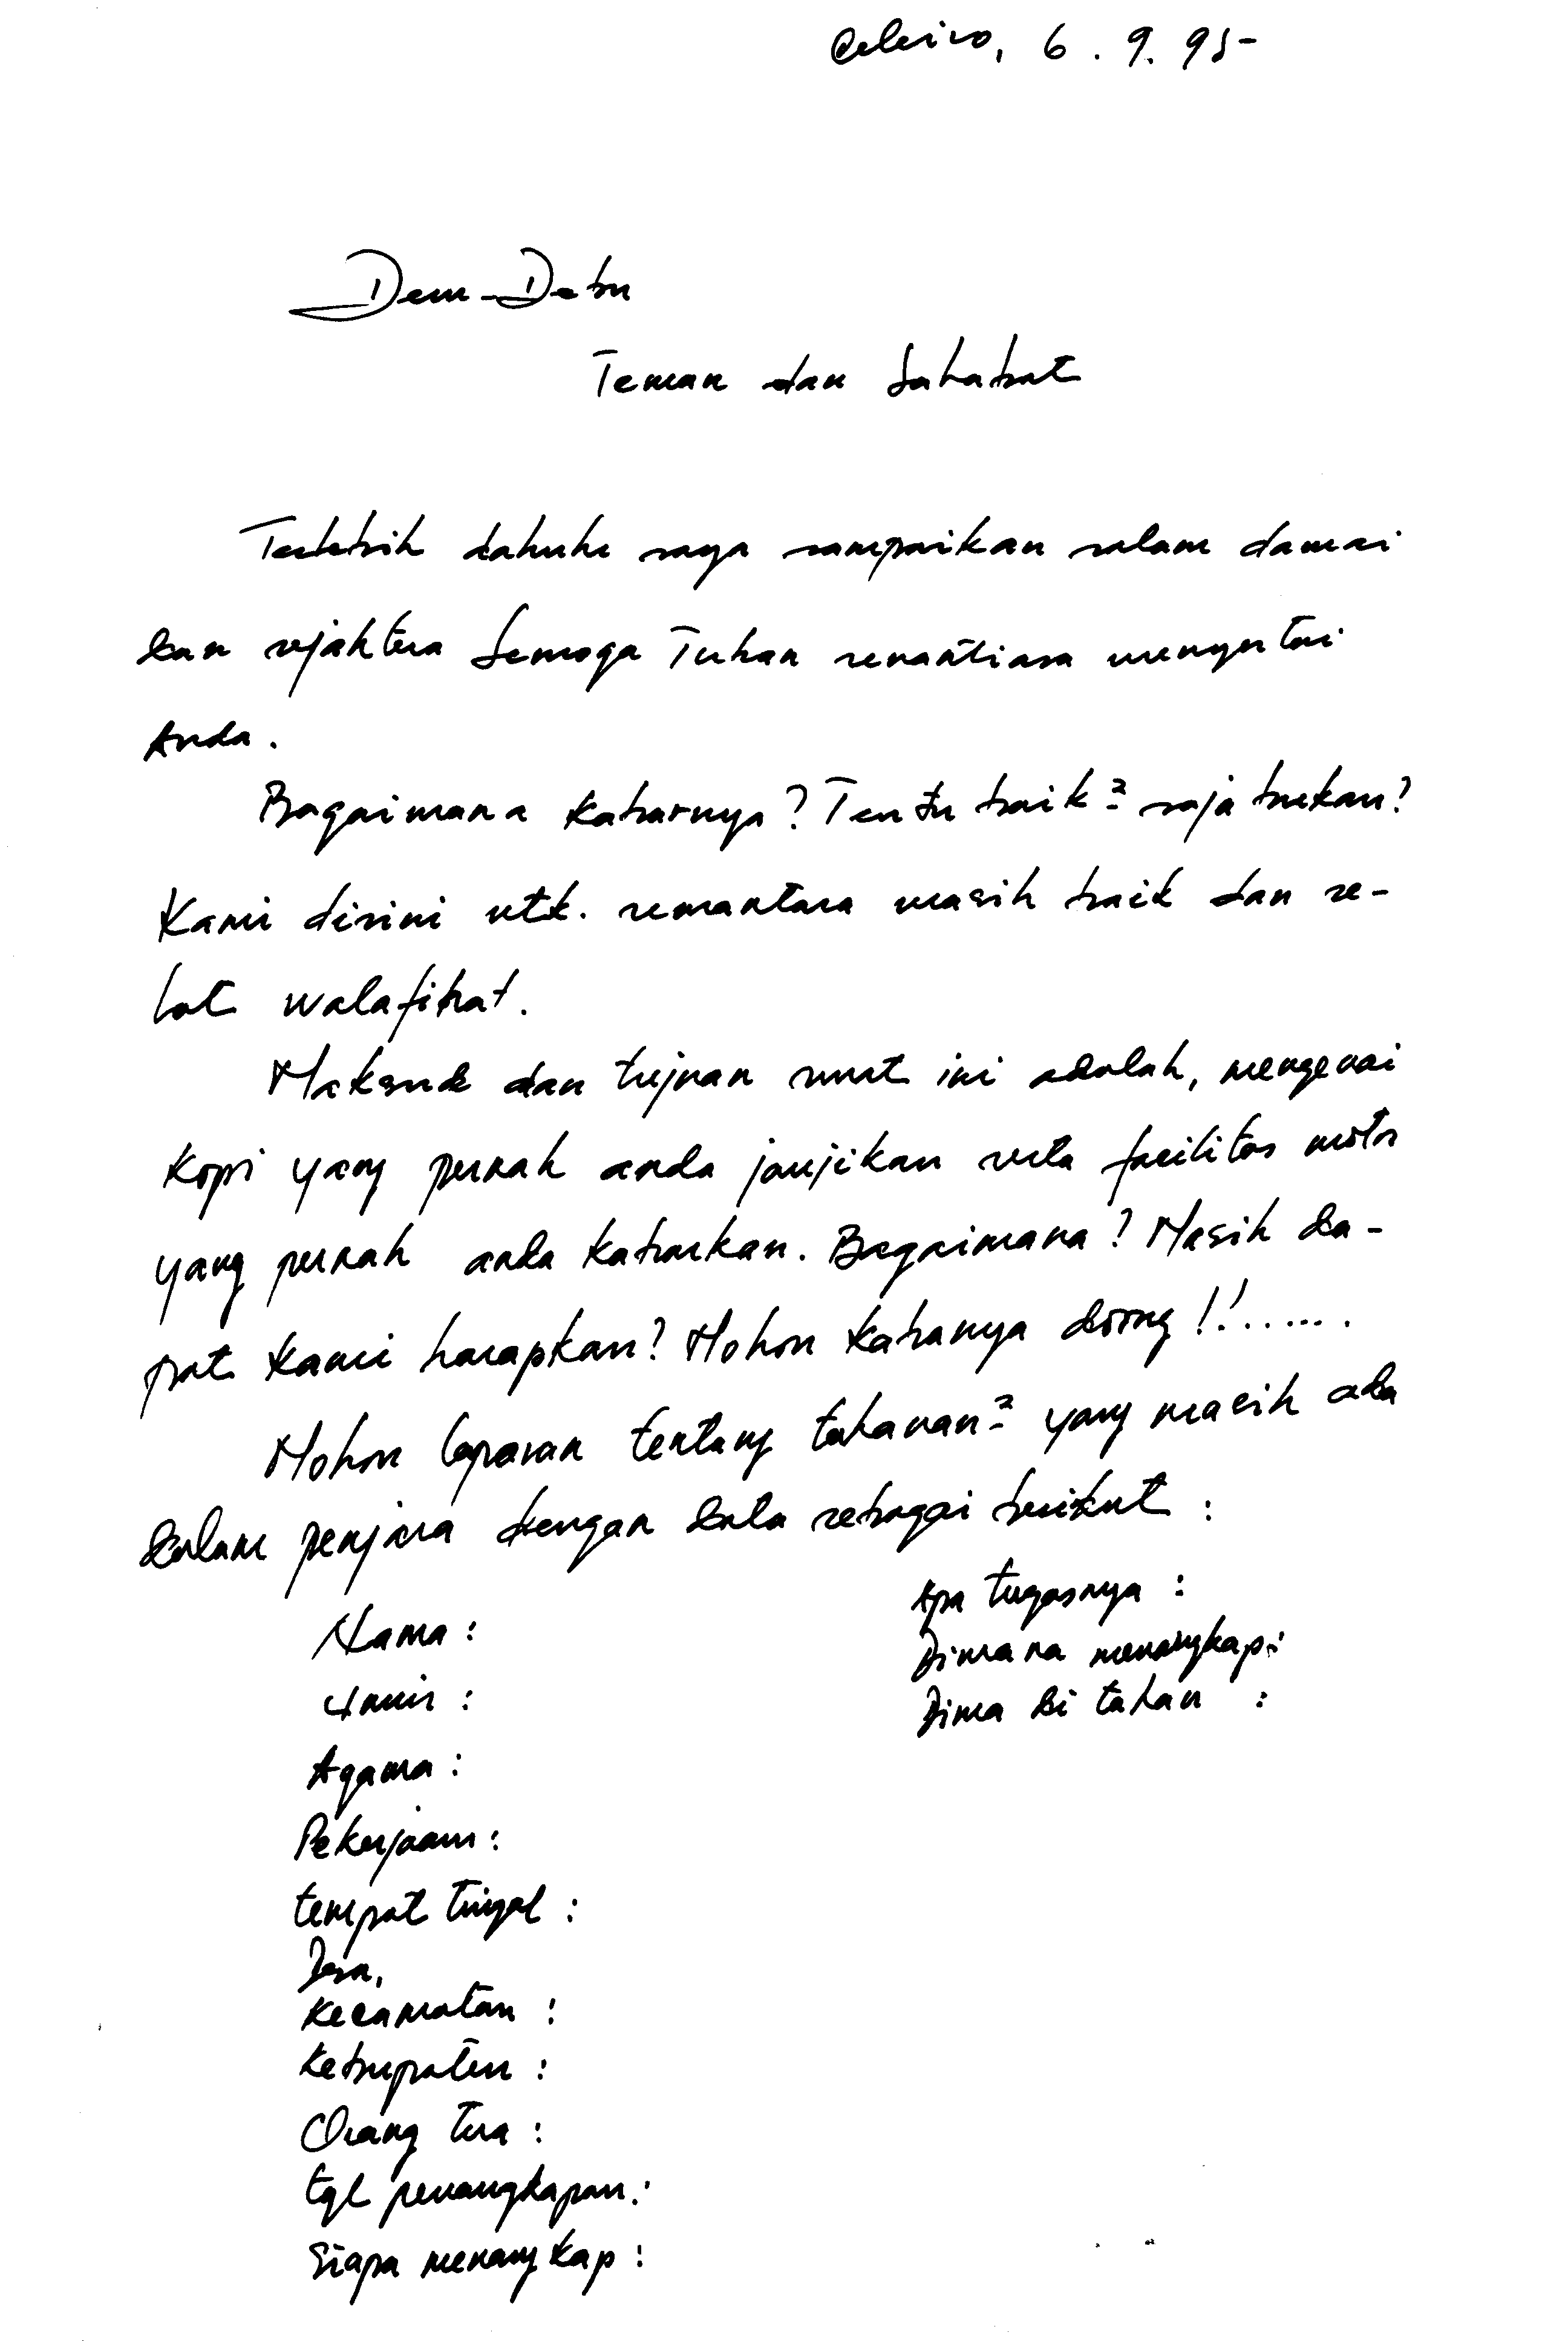 Celeiro, 6 . 9. 95-
Dem-Debu
Teman dan Sahabat
Terlebih dahulu saya sampaikan salam damai
dan sejahtera Semoga Tuhan senantiasa menyertai
Anda.
Bagaimana kabarnya? Tentu baik² saja bukan?
Kami disini utk. sementara masih baik dan se-
hat walafihat.
Maksud dan tujuan surat ini adalah, mengenai
kopi yang pernah anda janjikan serta fasilitas motor
yang pernah anda kabarkan. Bagaimana? Masih da-
pat kami harapkan? Mohon kabarnya doong!!......
Mohon laporan tentang tahanan² yang masih ada
dalam penjara dengan data sebagai berikut :
Nama :
Umur :
Agama :
Pekerjaan :
tempat tingal :
Desa,
Kecamatan :
Kebupaten :
Orang tua :
tgl penangkapan :
Siapa menangkap :
Apa tugasnya :
Dimana menangkap :
Dima di tahan :